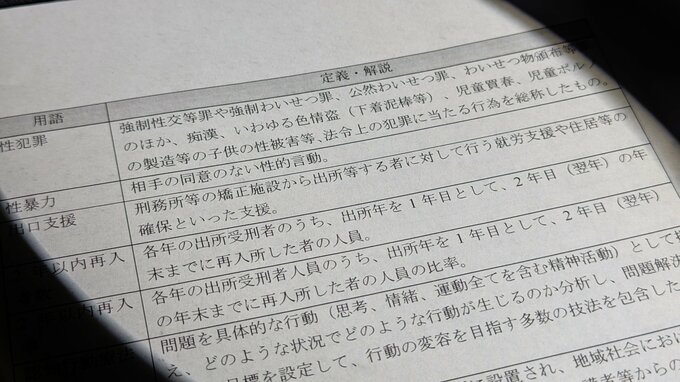 用語
定義・解説
性犯罪
強制性交等罪や強制わいせつ罪、公然わいせつ罪、わいせつ物頒布等
のほか、痴漢、いわゆる色情盗(下着泥棒等)、児童買春、児童ポル
の製造等の子供の性被害等、法令上の犯罪に当たる行為を総称したもの。
性暴力
相手の同意のない性的言動。
出口支援
刑務所等の矯正施設から出所等する者に対して行う就労支援や住居等の
確保といった支援。
年以内再入
各年の出所受刑者のうち、出所年を1年目として、2年目(翌年)の年
末までに再入所した者の人員。
以内再入
各年の出所受刑者人員のうち、出所年を1年目として、2年目(翌年)
の年末までに再入所した者の人員の比率。
療法
問題を具体的な行動(思考、情緒、運動全てを含む精神活動)として
え、どのような状況でどのような行動が生じるのか分析し、問題解決
目標を設定して、行動の変容を目指す多数の技法を包含した
設置され、地域社会にお
者等からの